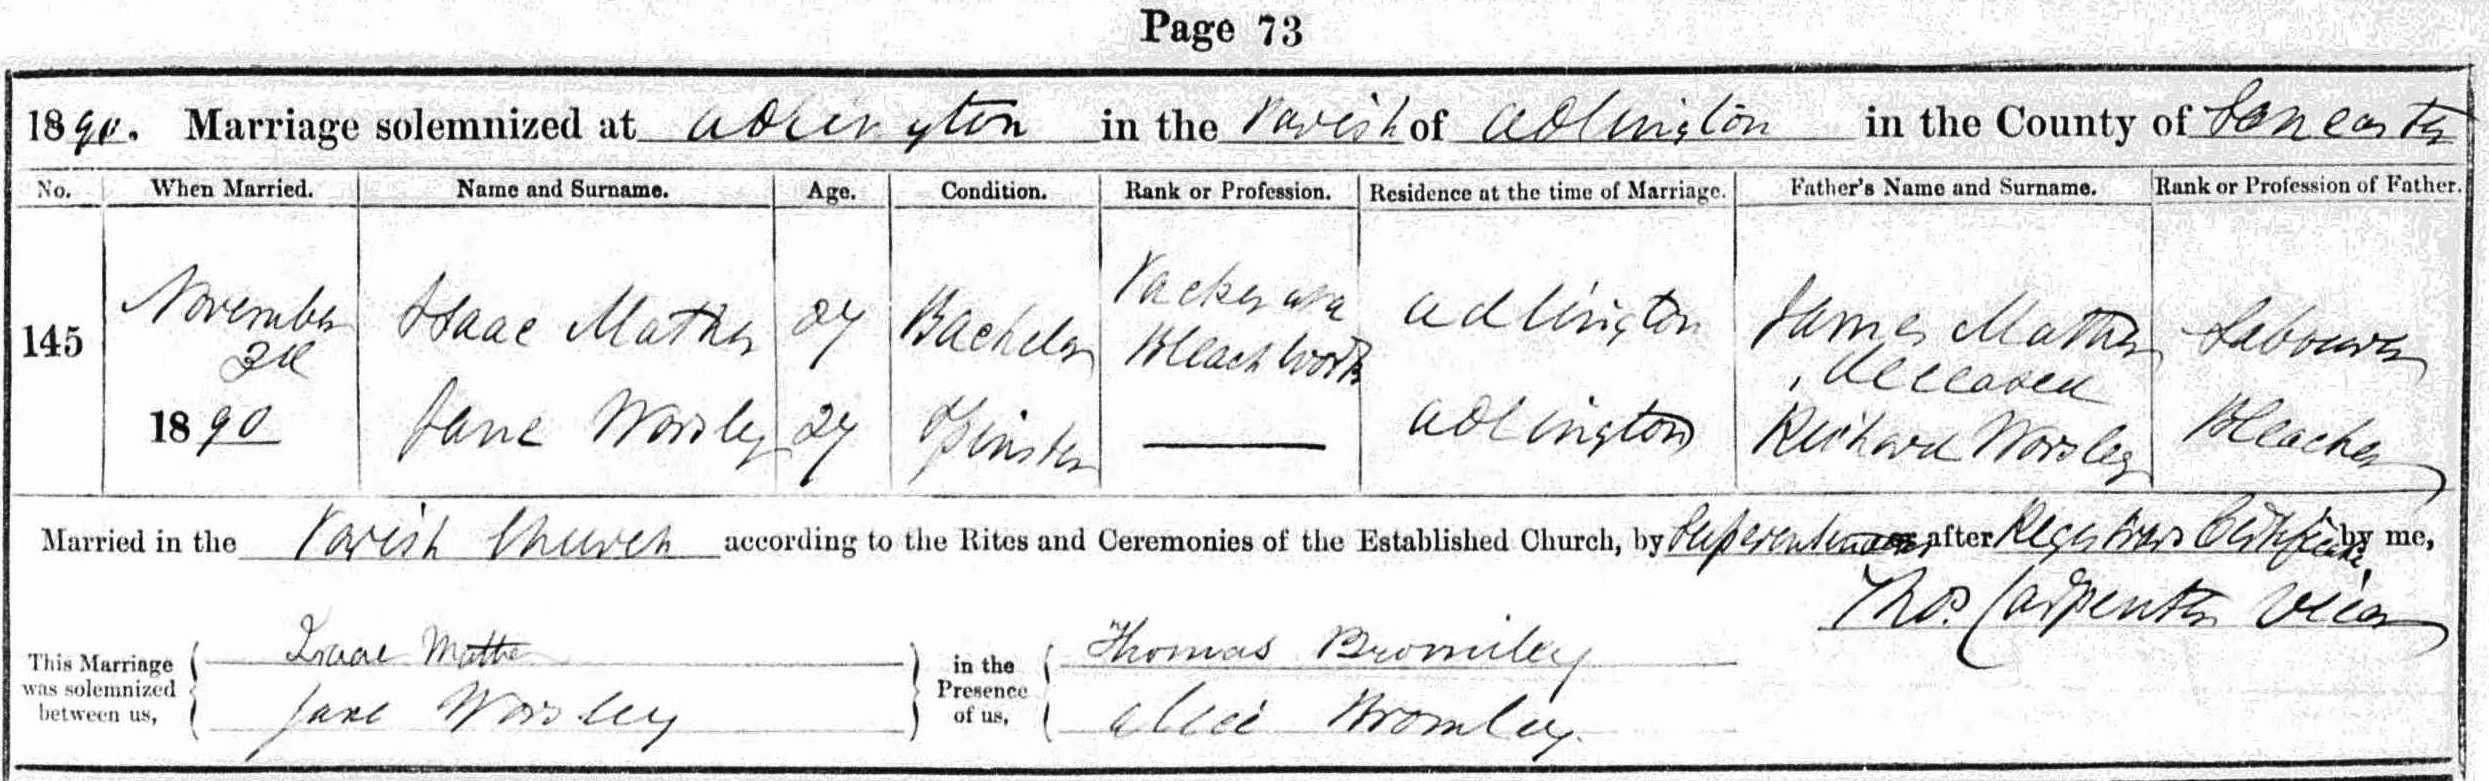 Page 73
1890. Marriage solemnized at Adlington in the Parish of Adlington in the County of Lancaster
No. When Married. Name and Surname. Age. Condition. Rank or Profession. Residence at the time of Marriage. Father's Name and Surname. Rank or Profession of Father.
145 November Isaac Mather 27 Bachelor Packer at a Bleachworks Adlington James Mather deceased Labourer
1890 Jane Worsley 27 Spinster Adlington Richard Worsley Bleacher
Married in the Parish Church according to the Rites and Ceremonies of the Established Church, by Superintendent after Registrars Certificate by me,
Thos. Carpenter Vicar
This Marriage was solemnized between us, Isaac Mather in the Presence of us, Thomas Bromiley
Jane Worsley Alice Bromley.